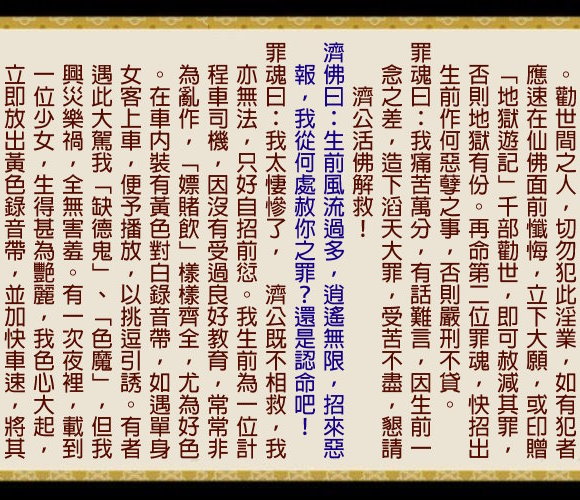 。勸世間之人，切勿犯此淫業，如有犯者
應速在仙佛面前懺悔，立下大願，或印贈
「地獄遊記」千部勸世，即可赦減其罪，
否則地獄有份。再命第二位罪魂，快招出
生前作何惡孽之事，否則嚴刑不貸。
罪魂曰：我痛苦萬分，有話難言，因生前一
念之差，造下滔天大罪，受苦不盡，懇請
濟公活佛解救！
濟佛曰：生前風流過多，逍遙無限，招來惡
報，我從何處赦你之罪？還是認命吧！
罪魂曰：我太悽慘了，　濟公既不相救，我
亦無法，只好自招前愆。我生前為一位計
程車司機，因沒有受過良好教育，常常非
為亂作，「嫖賭飲」樣樣齊全，尤為好色
。在車內裝有黃色對白錄音帶，如遇單身
女客上車，便予播放，以挑逗引誘。有者
遇此大駕我「缺德鬼」、「色魔」，但我
興災樂禍，全無害羞。有一次夜裡，載到
一位少女，生得甚為艷麗，我色心大起，
立即放出黃色錄音帶，並加快車速，將其